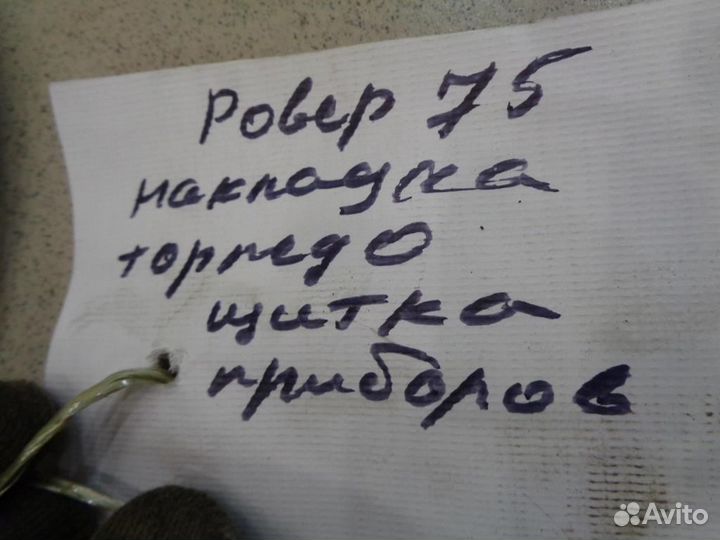 Ровер 75
накладка
торпедо
щитка
приборов
Avito